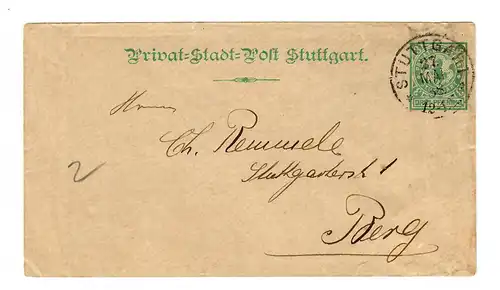 Privat-Stadt-Post Stuttgart.
STUTTGART
27
12-1
Herrn
Ch. Remmele
Stuttgarterstr 1
Berg
2